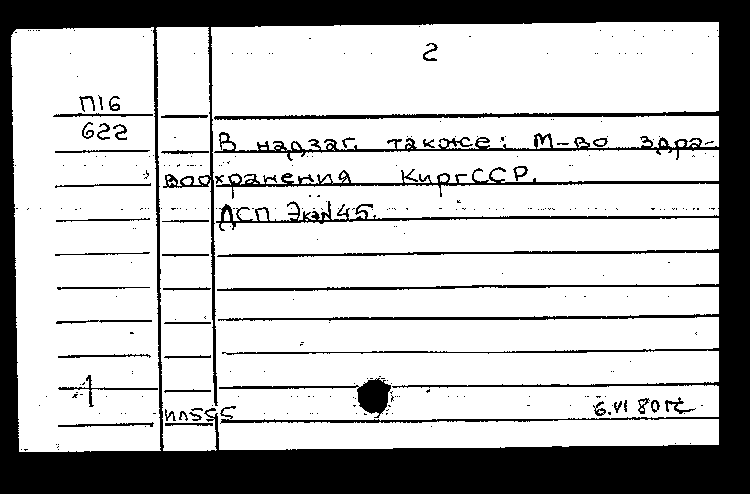 2
П16
622
В надзаг. также: М-во здра-
воохранения КиргССР.
ДСП Экз№45.
1
ил555
6.VI 80